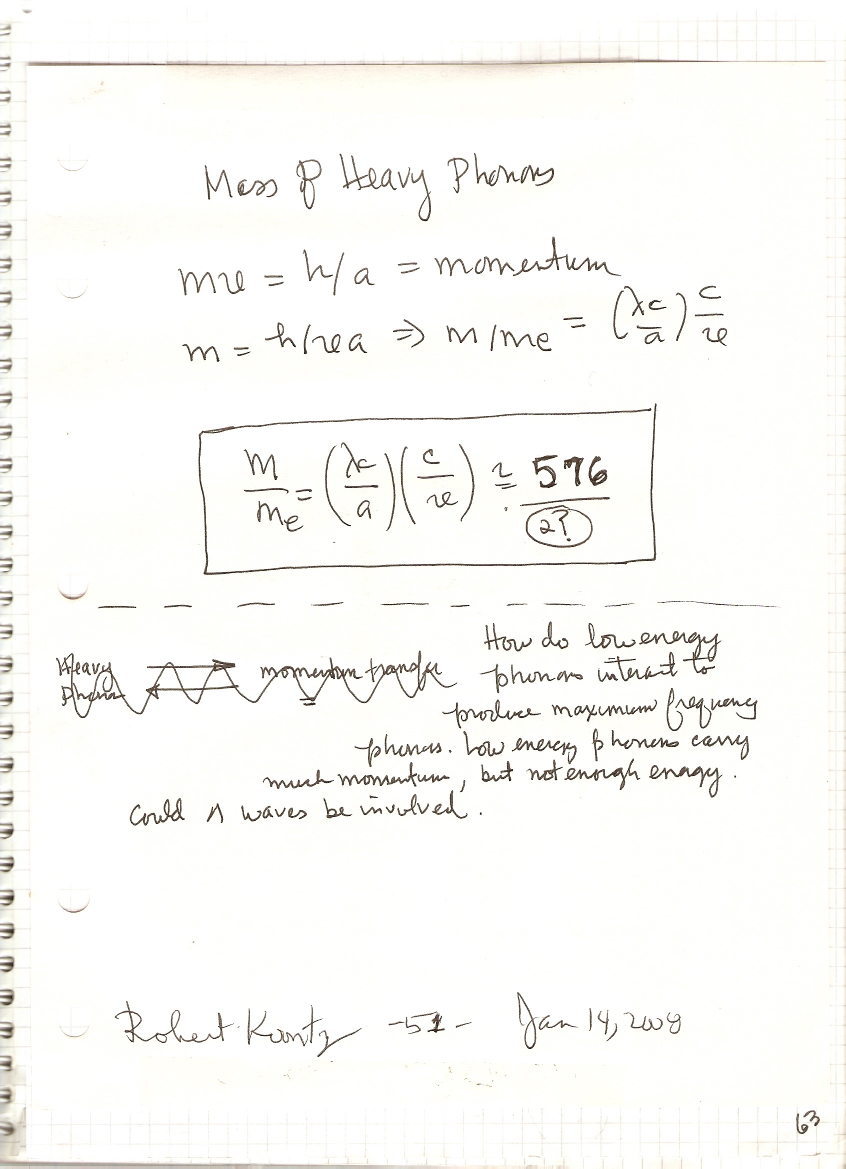 Mass of Heavy Phonons
mv = h/a = momentum
m = h/va ⇒ m/me = (λc/a) c/v
m/me = (λc/a)(c/v) ≅ 576/2?
Heavy Phonon momentum transfer
How do low energy
phonons interact to
produce maximum frequency
phonons. Low energy phonons carry
much momentum, but not enough energy.
Could Λ waves be involved.
Robert Kuntz -51- Jan 14, 2008
63